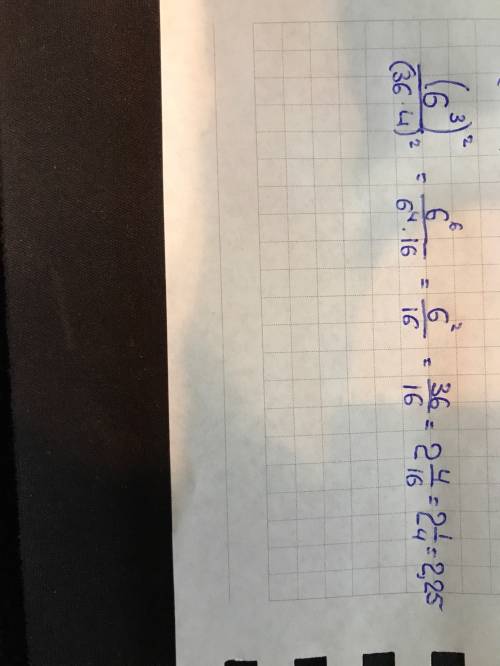 (6³)²/(36·4)² = 6⁶/6⁴·16 = 6²/16 = 36/16 = 2 4/16 = 2 1/4 = 2,25